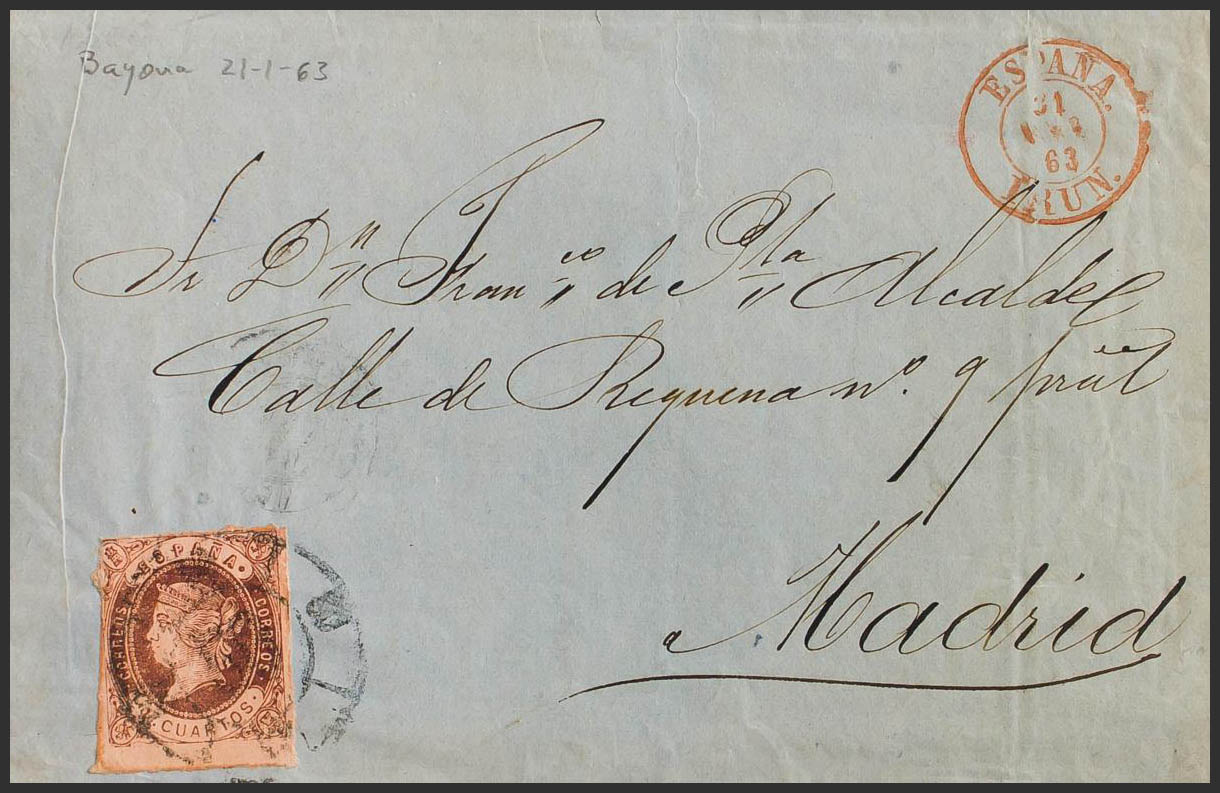 Bayona 21-1-63
ESPAÑA.
31
63
IRUN.
Sr Dn Franco de Pla Alcalde
Calle de Requena no. 9 pral
a Madrid
ESPAÑA.
CORREOS
CORREOS
CUARTOS.